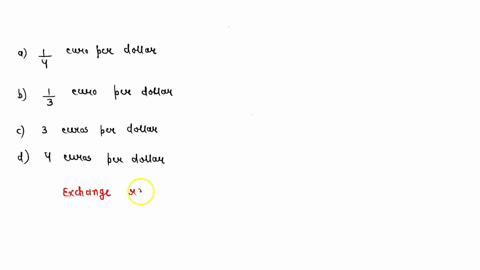 a) 1/4 euro per dollar
b) 1/3 euro per dollar
c) 3 euros per dollar
d) 4 euros per dollar
Exchange